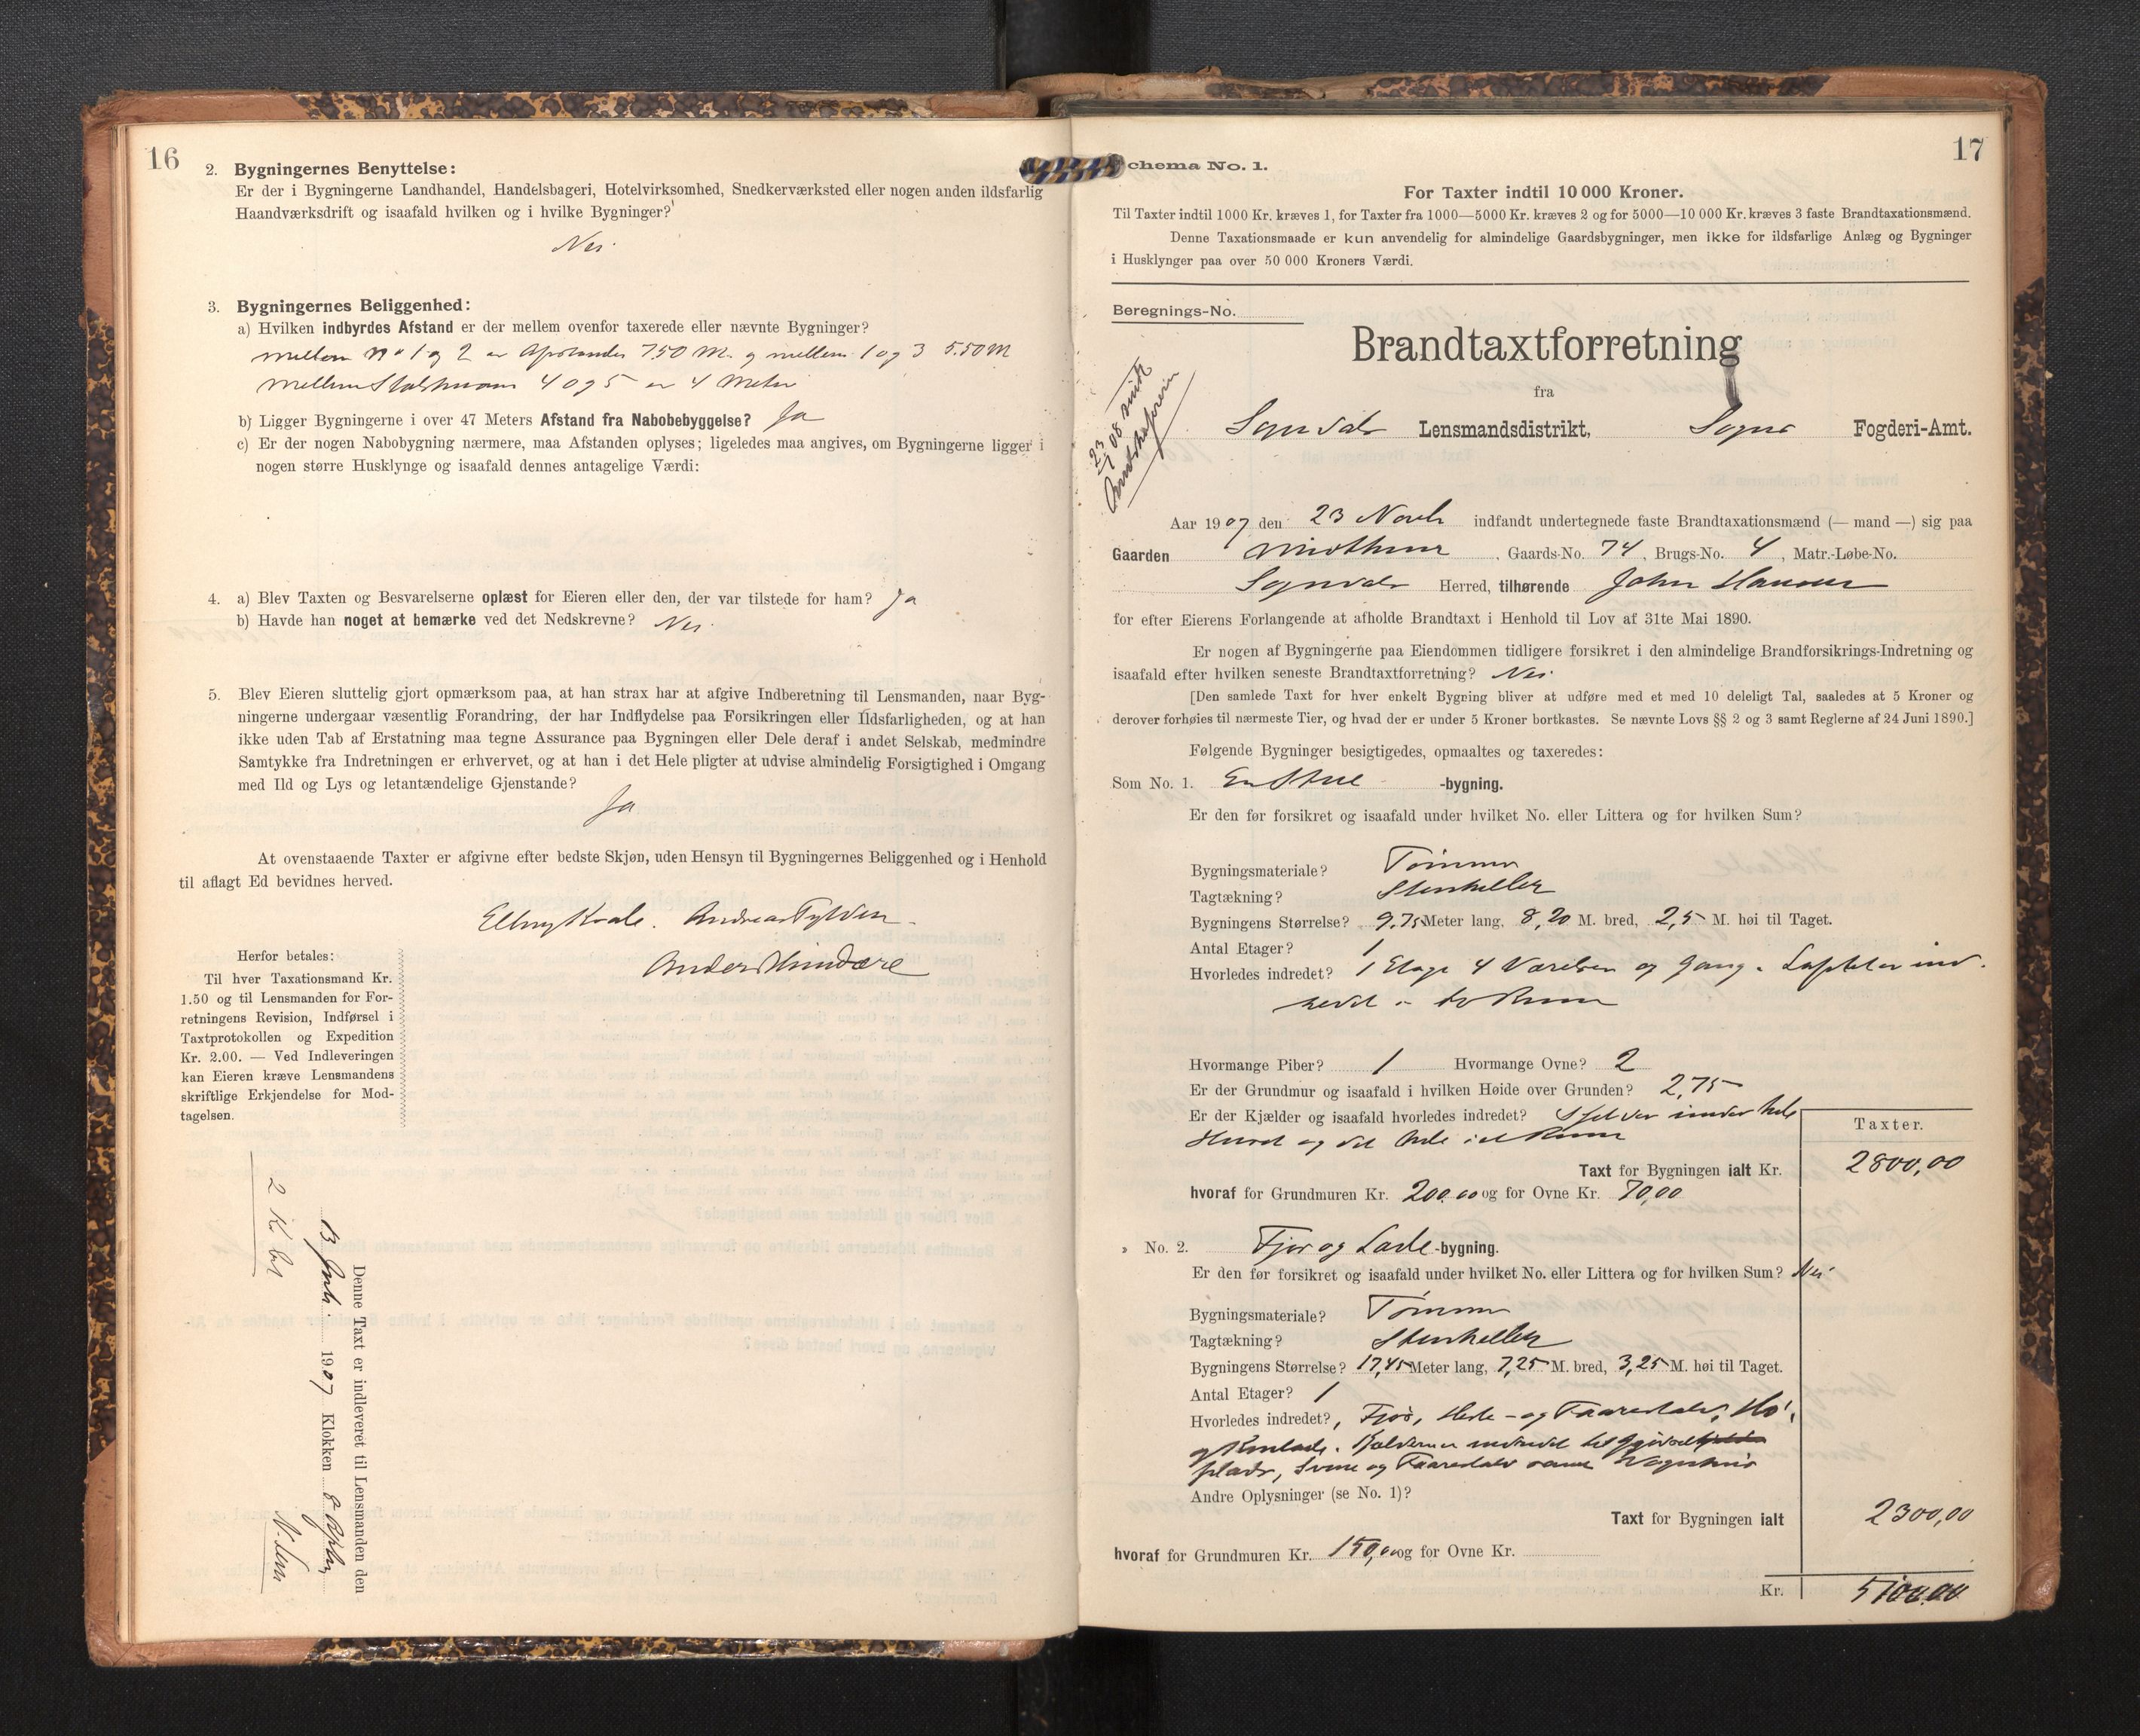 16
2. Bygningernes Benyttelse:
Er der i Bygningerne Landhandel, Handelsbageri, Hotelvirksomhed, Snedkerværksted eller nogen anden ildsfarlig
Haandværksdrift og isaafald hvilken og i hvilke Bygninger?
Nei.
3. Bygningernes Beliggenhed:
a) Hvilken indbyrdes Afstand er der mellem ovenfor taxerede eller nævnte Bygninger?
mellem No 1 og 2 er Afstanden 7.50 M. og mellem 1 og 3 5.50 M
mellem 4 og 5 er 4 Meter
b) Ligger Bygningerne i over 47 Meters Afstand fra Nabobebyggelse? Ja
c) Er der nogen Nabobygning nærmere, maa Afstanden oplyses; ligeledes maa angives, om Bygningerne ligger i
nogen større Husklynge og isaafald dennes antagelige Værdi:
4. a) Blev Taxten og Besvarelserne oplæst for Eieren eller den, der var tilstede for ham? Ja
b) Havde han noget at bemærke ved det Nedskrevne? Nei.
5. Blev Eieren sluttelig gjort opmærksom paa, at han strax har at afgive Indberetning til Lensmanden, naar Byg-
ningerne undergaar væsentlig Forandring, der har Indflydelse paa Forsikringen eller Ildsfarligheden, og at han
ikke uden Tab af Erstatning maa tegne Assurance paa Bygningen eller Dele deraf i andet Selskab, medmindre
Samtykke fra Indretningen er erhvervet, og at han i det Hele pligter at udvise almindelig Forsigtighed i Omgang
med Ild og Lys og letantændelige Gjenstande?
Ja
At ovenstaaende Taxter er afgivne efter bedste Skjøn, uden Hensyn til Bygningernes Beliggenhed og i Henhold
til aflagt Ed bevidnes herved.
Elling Kvale. Andreas Tylden
Anders Hundere
Herfor betales:
Til hver Taxationsmand Kr.
1.50 og til Lensmanden for For-
retningens Revision, Indførsel i
Taxtprotokollen og Expedition
Kr. 2.00. — Ved Indleveringen
kan Eieren kræve Lensmandens
skriftlige Erkjendelse for Mod-
tagelsen.
Denne Taxt er indleveret til Lensmanden den
13 1907 Klokken 8
2 K bt
17
chema No. 1.
For Taxter indtil 10 000 Kroner.
Til Taxter indtil 1000 Kr. kræves 1, for Taxter fra 1000—5000 Kr. kræves 2 og for 5000—10 000 Kr. kræves 3 faste Brandtaxationsmænd.
Denne Taxationsmaade er kun anvendelig for almindelige Gaardsbygninger, men ikke for ildsfarlige Anlæg og Bygninger
i Husklynger paa over 50 000 Kroners Værdi.
Beregnings-No.
Brandtaxtforretning
fra
Sogndals Lensmandsdistrikt, Sogns Fogderi-Amt.
Aar 1907 den 23 Novbr indfandt undertegnede faste Brandtaxationsmænd (— mand —) sig paa
Gaarden , Gaards-No. 74, Brugs-No. 4, Matr.-Løbe-No.
Sogndals Herred, tilhørende John Hansen
for efter Eierens Forlangende at afholde Brandtaxt i Henhold til Lov af 31te Mai 1890.
Er nogen af Bygningerne paa Eiendommen tidligere forsikret i den almindelige Brandforsikrings-Indretning og
isaafald efter hvilken seneste Brandtaxtforretning? Nei.
[Den samlede Taxt for hver enkelt Bygning bliver at udføre med et med 10 deleligt Tal, saaledes at 5 Kroner og
derover forhøies til nærmeste Tier, og hvad der er under 5 Kroner bortkastes. Se nævnte Lovs §§ 2 og 3 samt Reglerne af 24 Juni 1890.]
Følgende Bygninger besigtigedes, opmaaltes og taxeredes:
Som No. 1. En Stue -bygning.
Er den før forsikret og isaafald under hvilket No. eller Littera og for hvilken Sum?
Bygningsmateriale? Tømmer
Tagtækning? Stenheller
Bygningens Størrelse? 9,75 Meter lang, 8,20 M. bred, 2,5 M. høi til Taget.
Antal Etager? 1
Hvorledes indredet? 1 Etage 4 Værelser og Gang. Loftet er ind-
redet i to Rum
Hvormange Piber? 1 Hvormange Ovne? 2
Er der Grundmur og isaafald i hvilken Høide over Grunden? 2,75
Er der Kjælder og isaafald hvorledes indredet? Kjelder under hele
Huset og det hele i et Rum
Taxter.
Taxt for Bygningen ialt Kr. 2800,00
hvoraf for Grundmuren Kr. 200.00 og for Ovne Kr. 70,00
» No. 2. Fjøs og Lade -bygning.
Er den før forsikret og isaafald under hvilket No. eller Littera og for hvilken Sum? Nei.
Bygningsmateriale? Tømmer
Tagtækning? Stenheller
Bygningens Størrelse? 17,45 Meter lang, 7,25 M. bred, 3,25 M. høi til Taget.
Antal Etager? 1
Hvorledes indredet? Fjøs, Heste- og Faarestald, Hø-
og Kornlade. Kjelderen indredet til Gjødsel
plads, Svine og Faarestald samt Vognskur
Andre Oplysninger (se No. 1)?
Taxt for Bygningen ialt 2300,00
hvoraf for Grundmuren Kr. 150,00 og for Ovne Kr.
Kr. 5100.00